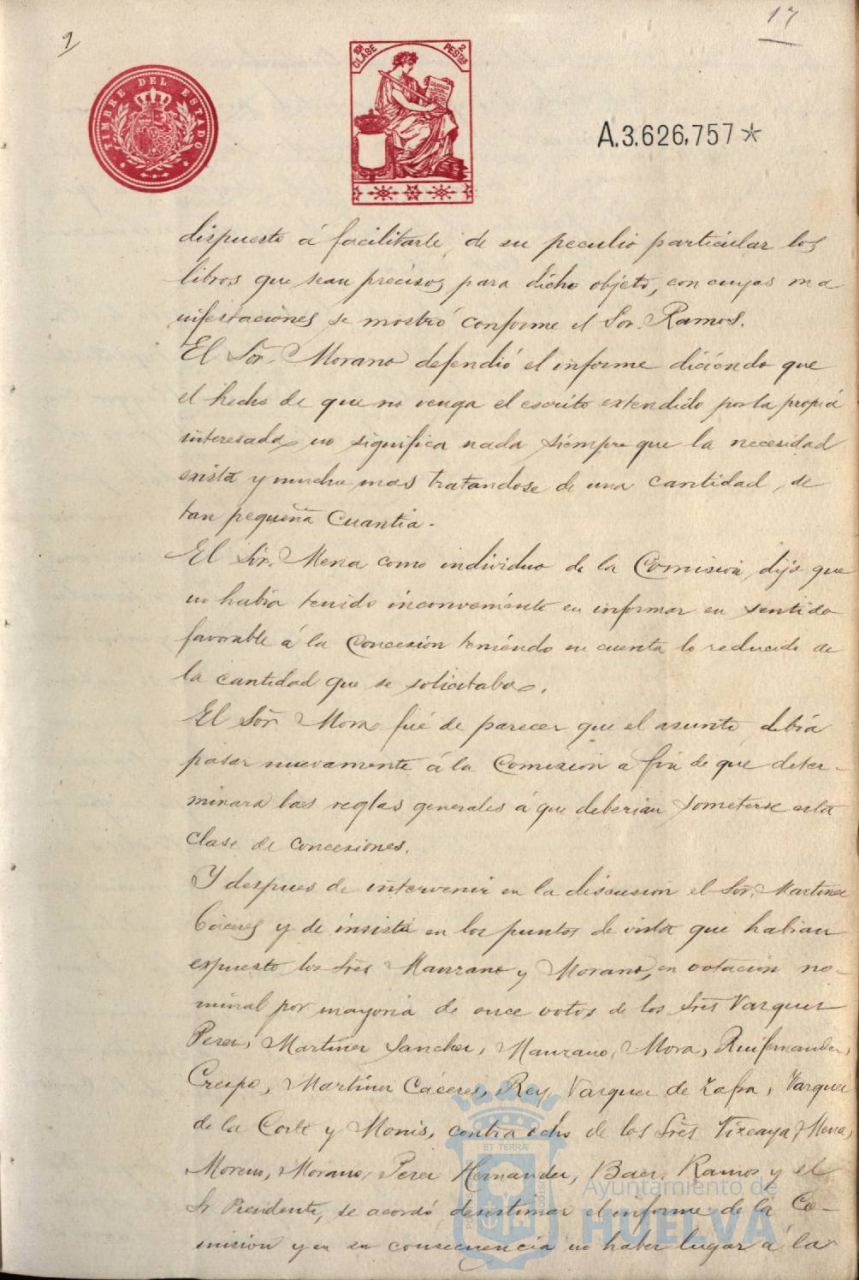 17
9
TIMBRE DEL ESTADO
10ª CLASE 2 PESTAS
A.3.626,757*
dispuesto á facilitarle, de su peculio particular los
libros que sean precisos para dicho objeto, con cuyas ma
nifestaciones se mostró conforme el Sor. Ramos.
El Sor. Morano defendió el informe diciendo que
el hecho de que no venga el escrito extendido por la propia
interesada no significa nada siempre que la necesidad
exista y mucho mas tratandose de una cantidad, de
tan pequeña cuantia.
El Sor. Mena como individuo de la Comision, dijo que
no habia tenido inconveniente en informar en sentido
favorable á la Concesión teniendo en cuenta lo reducido de
la cantidad que se solicitaba.
El Sor. Mora fué de parecer que el asunto debia
pasar nuevamente á la Comision a fin de que deter-
minara las reglas generales á que deberian someterse esta
clase de concesiones.
Y despues de intervenir en la discusion el Sor. Martinez
Cáceres y de insistir en los puntos de vista que habian
expuesto los Sres Manzano y Morano, en votacion no-
minal por mayoria de once votos de los Sres Vazquez
Perez, Martinez Sanchez, Manzano, Mora, Ruifernandez,
Crespo, Martinez Cáceres, Rey, Vazquez de Zafra, Vazquez
de la Corte y Monis, contra ocho de los Sres Vizcaya, Mena,
Moreno, Morano, Perez Hernandez, Baez, Ramos y el
Sr Presidente, se acordó desestimar el informe de la Co-
mision y en su consecuencia no haber lugar á la
ET TERRA
Ayuntamiento de
HUELVA